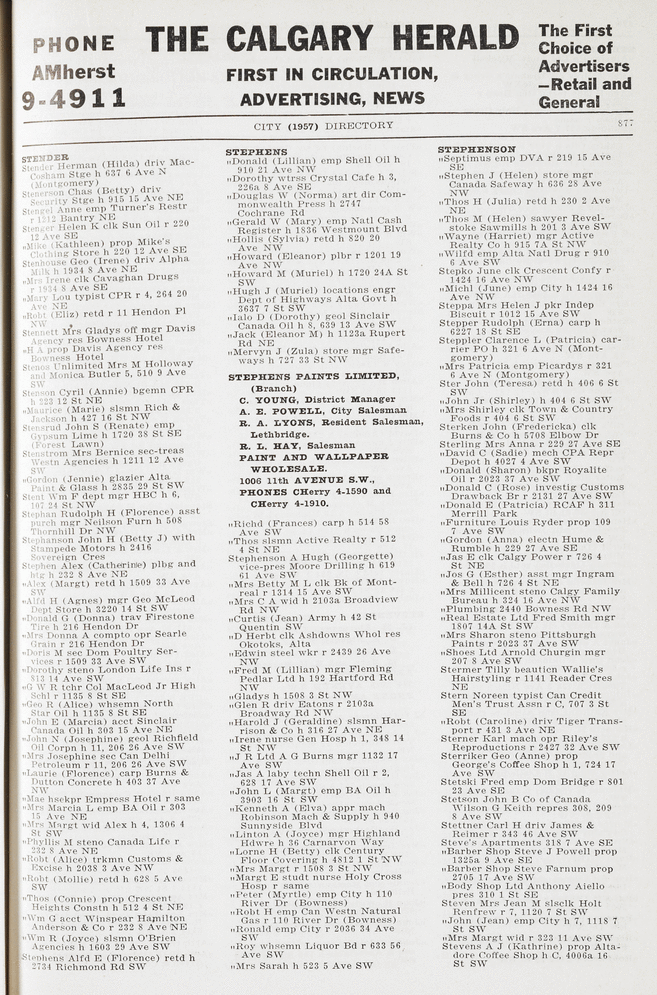 PHONE
AMherst
9-4911
THE CALGARY HERALD
FIRST IN CIRCULATION,
ADVERTISING, NEWS
The First
Choice of
Advertisers
—Retail and
General
CITY (1957) DIRECTORY
877
STENDER
Stender Herman (Hilda) driv Mac-
Cosham Stge h 637 6 Ave N
(Montgomery)
Stenerson Chas (Betty) driv
Security Stge h 915 15 Ave NE
Stengel Anne emp Turner's Restr
r 1212 Bantry NE
Stenger Helen K clk Sun Oil r 220
12 Ave SE
„Mike (Kathleen) prop Mike's
Clothing Store h 220 12 Ave SE
Stenhouse Geo (Irene) driv Alpha
Milk h 1934 8 Ave NE
„Mrs Irene clk Cavaghan Drugs
r 1934 8 Ave SE
„Mary Lou typist CPR r 4, 264 20
Ave NE
„Robt (Eliz) retd r 11 Hendon Pl
NW
Stennett Mrs Gladys off mgr Davis
Agency res Bowness Hotel
„H A prop Davis Agency res
Bowness Hotel
Stenos Unlimited Mrs M Holloway
and Monica Butler 5, 510 9 Ave
SW
Stenson Cyril (Annie) bgemn CPR
h 223 12 St NE
„Maurice (Marie) slsmn Rich &
Jackson h 427 16 St NW
Stensrud John S (Renate) emp
Gypsum Lime h 1720 38 St SE
(Forest Lawn)
Stenstrom Mrs Bernice sec-treas
Westn Agencies h 1211 12 Ave
SW
„Gordon (Jennie) glazier Alta
Paint & Glass h 2835 29 St SW
Stent Wm F dept mgr HBC h 6,
107 24 St NW
Stephan Rudolph H (Florence) asst
purch mgr Neilson Furn h 508
Thornhill Dr NW
Stephanson John H (Betty J) with
Stampede Motors h 2416
Sovereign Cres
Stephen Alex (Catherine) plbg and
htg h 232 8 Ave NE
„Alex (Margt) retd h 1509 33 Ave
SW
„Alfd H (Agnes) mgr Geo McLeod
Dept Store h 3220 14 St SW
„Donald G (Donna) trav Firestone
Tire h 216 Hendon Dr
„Mrs Donna A compto opr Searle
Grain r 216 Hendon Dr
„Doris M sec Dom Poultry Ser-
vices r 1509 33 Ave SW
„Dorothy steno London Life Ins r
813 14 Ave SW
„G W R tchr Col MacLeod Jr High
Schl r 1135 8 St SE
„Geo R (Alice) whsemn North
Star Oil h 1135 8 St SE
„John E (Marcia) acct Sinclair
Canada Oil h 303 15 Ave NE
„John N (Josephine) geol Richfield
Oil Corpn h 11, 206 26 Ave SW
„Mrs Josephine sec Can Delhi
Petroleum r 11, 206 26 Ave SW
„Laurie (Florence) carp Burns &
Dutton Concrete h 403 37 Ave
NW
„Mae hsekpr Empress Hotel r same
„Mrs Marcia L emp BA Oil r 303
15 Ave NE
„Mrs Margt wid Alex h 4, 1306 4
St SW
„Phyllis M steno Canada Life r
232 8 Ave NE
„Robt (Alice) trkmn Customs &
Excise h 2038 3 Ave NW
„Robt (Mollie) retd h 628 5 Ave
SW
„Thos (Connie) prop Crescent
Heights Constn h 512 4 St NE
„Wm G acct Winspear Hamilton
Anderson & Co r 232 8 Ave NE
„Wm R (Joyce) slsmn O'Brien
Agencies h 1603 29 Ave SW
Stephens Alfd E (Florence) retd h
2734 Richmond Rd SW
STEPHENS
„Donald (Lillian) emp Shell Oil h
910 21 Ave NW
„Dorothy wtrss Crystal Cafe h 3,
226a 8 Ave SE
„Douglas W (Norma) art dir Com-
monwealth Press h 2747
Cochrane Rd
„Gerald W (Mary) emp Natl Cash
Register h 1836 Westmount Blvd
„Hollis (Sylvia) retd h 820 20
Ave NW
„Howard (Eleanor) plbr r 1201 19
Ave NW
„Howard M (Muriel) h 1720 24A St
SW
„Hugh J (Muriel) locations engr
Dept of Highways Alta Govt h
3637 7 St SW
„Ialo D (Dorothy) geol Sinclair
Canada Oil h 8, 639 13 Ave SW
„Jack (Eleanor M) h 1123a Rupert
Rd NE
„Mervyn J (Zula) store mgr Safe-
ways h 727 33 St NW
STEPHENS PAINTS LIMITED,
(Branch)
C. YOUNG, District Manager
A. E. POWELL, City Salesman
R. A. LYONS, Resident Salesman,
Lethbridge.
R. L. HAY, Salesman
PAINT AND WALLPAPER
WHOLESALE.
1006 11th AVENUE S.W.,
PHONES CHerry 4-1590 and
CHerry 4-1910.
„Richd (Frances) carp h 514 58
Ave SW
„Thos slsmn Active Realty r 512
4 St NE
Stephenson A Hugh (Georgette)
vice-pres Moore Drilling h 619
61 Ave SW
„Mrs Betty M L clk Bk of Mont-
real r 1314 15 Ave SW
„Mrs C A wid h 2103a Broadview
Rd NW
„Curtis (Jean) Army h 42 St
Quentin SW
„D Herbt clk Ashdowns Whol res
Okotoks, Alta
„Edwin steel wkr r 2439 26 Ave
NW
„Fred M (Lillian) mgr Fleming
Pedlar Ltd h 192 Hartford Rd
NW
„Gladys h 1508 3 St NW
„Glen R driv Eatons r 2103a
Broadway Rd NW
„Harold J (Geraldine) slsmn Har-
rison & Co h 316 27 Ave NE
„Irene nurse Gen Hosp h 1, 348 14
St NW
„J R Ltd A G Burns mgr 1132 17
Ave SW
„Jas A laby techn Shell Oil r 2,
628 17 Ave SW
„John L (Margt) emp BA Oil h
3903 16 St SW
„Kenneth A (Elva) appr mach
Robinson Mach & Supply h 940
Sunnyside Blvd
„Linton A (Joyce) mgr Highland
Hdwre h 36 Carnarvon Way
„Lorne H (Betty) clk Century
Floor Covering h 4812 1 St NW
„Mrs Margt r 1508 3 St NW
„Margt E studt nurse Holy Cross
Hosp r same
„Peter (Myrtle) emp City h 110
River Dr (Bowness)
„Robt H emp Can Westn Natural
Gas r 110 River Dr (Bowness)
„Ronald emp City r 2036 34 Ave
SW
„Roy whsemn Liquor Bd r 633 56
Ave SW
„Mrs Sarah h 523 5 Ave SW
STEPHENSON
„Septimus emp DVA r 219 15 Ave
SE
„Stephen J (Helen) store mgr
Canada Safeway h 636 28 Ave
NW
„Thos H (Julia) retd h 230 2 Ave
NE
„Thos M (Helen) sawyer Revel-
stoke Sawmills h 201 3 Ave SW
„Wayne (Harriet) mgr Active
Realty Co h 915 7A St NW
„Wilfd emp Alta Natl Drug r 910
6 Ave SW
Stepko June clk Crescent Confy r
1424 16 Ave NW
„Michl (June) emp City h 1424 16
Ave NW
Steppa Mrs Helen J pkr Indep
Biscuit r 1012 15 Ave SW
Stepper Rudolph (Erna) carp h
6227 18 St SE
Steppler Clarence L (Patricia) car-
rier PO h 321 6 Ave N (Mont-
gomery)
„Mrs Patricia emp Picardys r 321
6 Ave N (Montgomery)
Ster John (Teresa) retd h 406 6 St
SW
„John Jr (Shirley) h 404 6 St SW
„Mrs Shirley clk Town & Country
Foods r 404 6 St SW
Sterken John (Fredericka) clk
Burns & Co h 5708 Elbow Dr
Sterling Mrs Anna r 229 27 Ave SE
„David C (Sadie) mech CPA Repr
Depot h 4027 4 Ave SW
„Donald (Sharon) bkpr Royalite
Oil r 2023 37 Ave SW
„Donald C (Rose) investig Customs
Drawback Br r 2131 27 Ave SW
„Donald E (Patricia) RCAF h 311
Merrill Park
„Furniture Louis Ryder prop 109
7 Ave SW
„Gordon (Anna) electn Hume &
Rumble h 229 27 Ave SE
„Jas E clk Calgy Power r 726 4
St NE
„Jos G (Esther) asst mgr Ingram
& Bell h 726 4 St NE
„Mrs Millicent steno Calgy Family
Bureau h 324 16 Ave NW
„Plumbing 2440 Bowness Rd NW
„Real Estate Ltd Fred Smith mgr
1807 14A St SW
„Mrs Sharon steno Pittsburgh
Paints r 2023 37 Ave SW
„Shoes Ltd Arnold Churgin mgr
207 8 Ave SW
Stermer Tilly beauticn Wallie's
Hairstyling r 1141 Reader Cres
NE
Stern Noreen typist Can Credit
Men's Trust Assn r C, 707 3 St
SE
„Robt (Caroline) driv Tiger Trans-
port r 431 3 Ave NE
Sterner Karl mach opr Riley's
Reproductions r 2427 32 Ave SW
Sterriker Geo (Anne) prop
George's Coffee Shop h 1, 724 17
Ave SW
Stetski Fred emp Dom Bridge r 801
23 Ave SE
Stetson John B Co of Canada
Wilson G Keith repres 308, 209
8 Ave SW
Stettner Carl H driv James &
Reimer r 343 46 Ave SW
Steve's Apartments 318 7 Ave SE
„Barber Shop Steve J Powell prop
1325a 9 Ave SE
„Barber Shop Steve Farnum prop
2705 17 Ave SW
„Body Shop Ltd Anthony Aiello
pres 310 1 St SE
Steven Mrs Jean M slsclk Holt
Renfrew r 7, 1120 7 St SW
„John (Jean) emp City h 7, 1118 7
St SW
„Mrs Margt wid r 323 11 Ave SW
Stevens A J (Kathrine) prop Alta-
dore Coffee Shop h C, 4006a 16
St SW